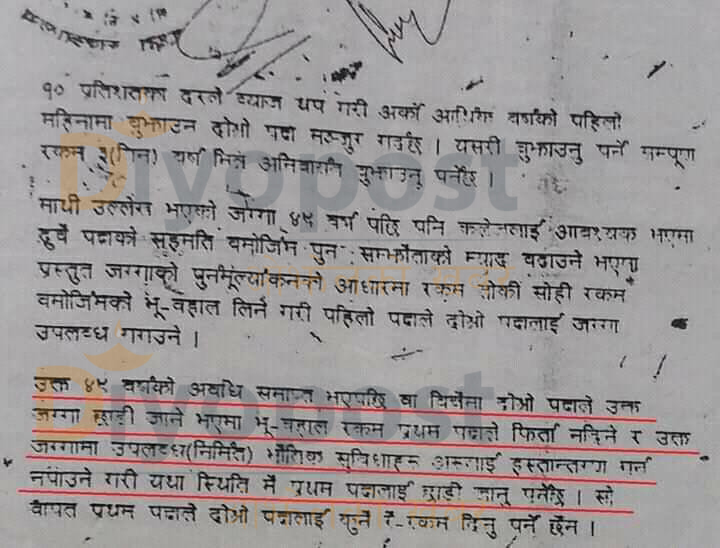 १० प्रतिशतका दरले व्याज थप गरी अर्को आर्थिक वर्षको पहिलो
महिनामा बुझाउन दोश्रो पक्ष मन्जुर गर्दछ । यसरी बुझाउनु पर्ने सम्पूर्ण
रकम ३(तिन) वर्ष भित्र अनिवार्यत बुझाउनु पर्नेछ ।
माथी उल्लेख भएको जग्गा ४५ वर्ष पछि पनि कलेजलाई आवश्यक भएमा
दुवै पक्षको सहमति वमोजिम पुन सम्झौताको म्याद वढाउने भएमा
प्रस्तुत जग्गाको पुनर्मूल्यांकनको आधारमा रकम तोकी सोही रकम
वमोजिमको भू-वहाल लिने गरी पहिलो पक्षले दोश्रो पक्षलाई जग्गा
उपलव्ध गराउने ।
उक्त ४५ वर्षको अवधि समाप्त भएपछि वा विचैमा दोश्रो पक्षले उक्त
जग्गा छाडी जाने भएमा भू-वहाल रकम प्रथम पक्षले फिर्ता नदिने र उक्त
जग्गामा उपलव्ध(निर्मित) भौतिक सुविधाहरू अरूलाई हस्तान्तरण गर्न
नपाउने गरी यथा स्थिति मै प्रथम पक्षलाई छाडी जानु पर्नेछ । सो
वापत प्रथम पक्षले दोश्रो पक्षलाई कुनै रकम दिनु पर्ने छैन ।
Diyopost
Diyopost